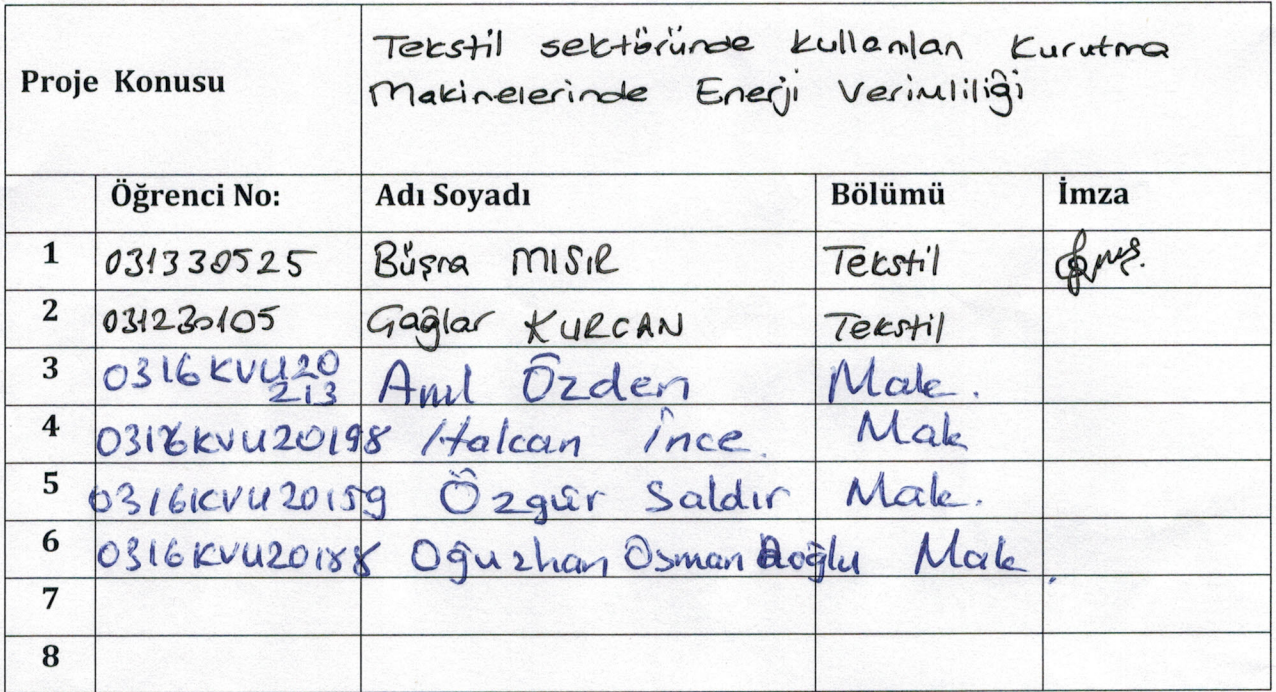 Proje Konusu
Tekstil sektöründe kullanılan Kurutma
Makinelerinde Enerji Verimliliği
Öğrenci No: Adı Soyadı Bölümü İmza
1 031330525 Büşra MISIR Tekstil
2 031230105 Çağlar KURCAN Tekstil
3 0316KVU20
213 Anıl Özden Mak.
4 0316KVU20198 Hakan İnce. Mak
5 0316KVU20159 Özgür Saldır Mak.
6 0316KVU20188 Oğuzhan Osman Aoğlu Mak.
7
8